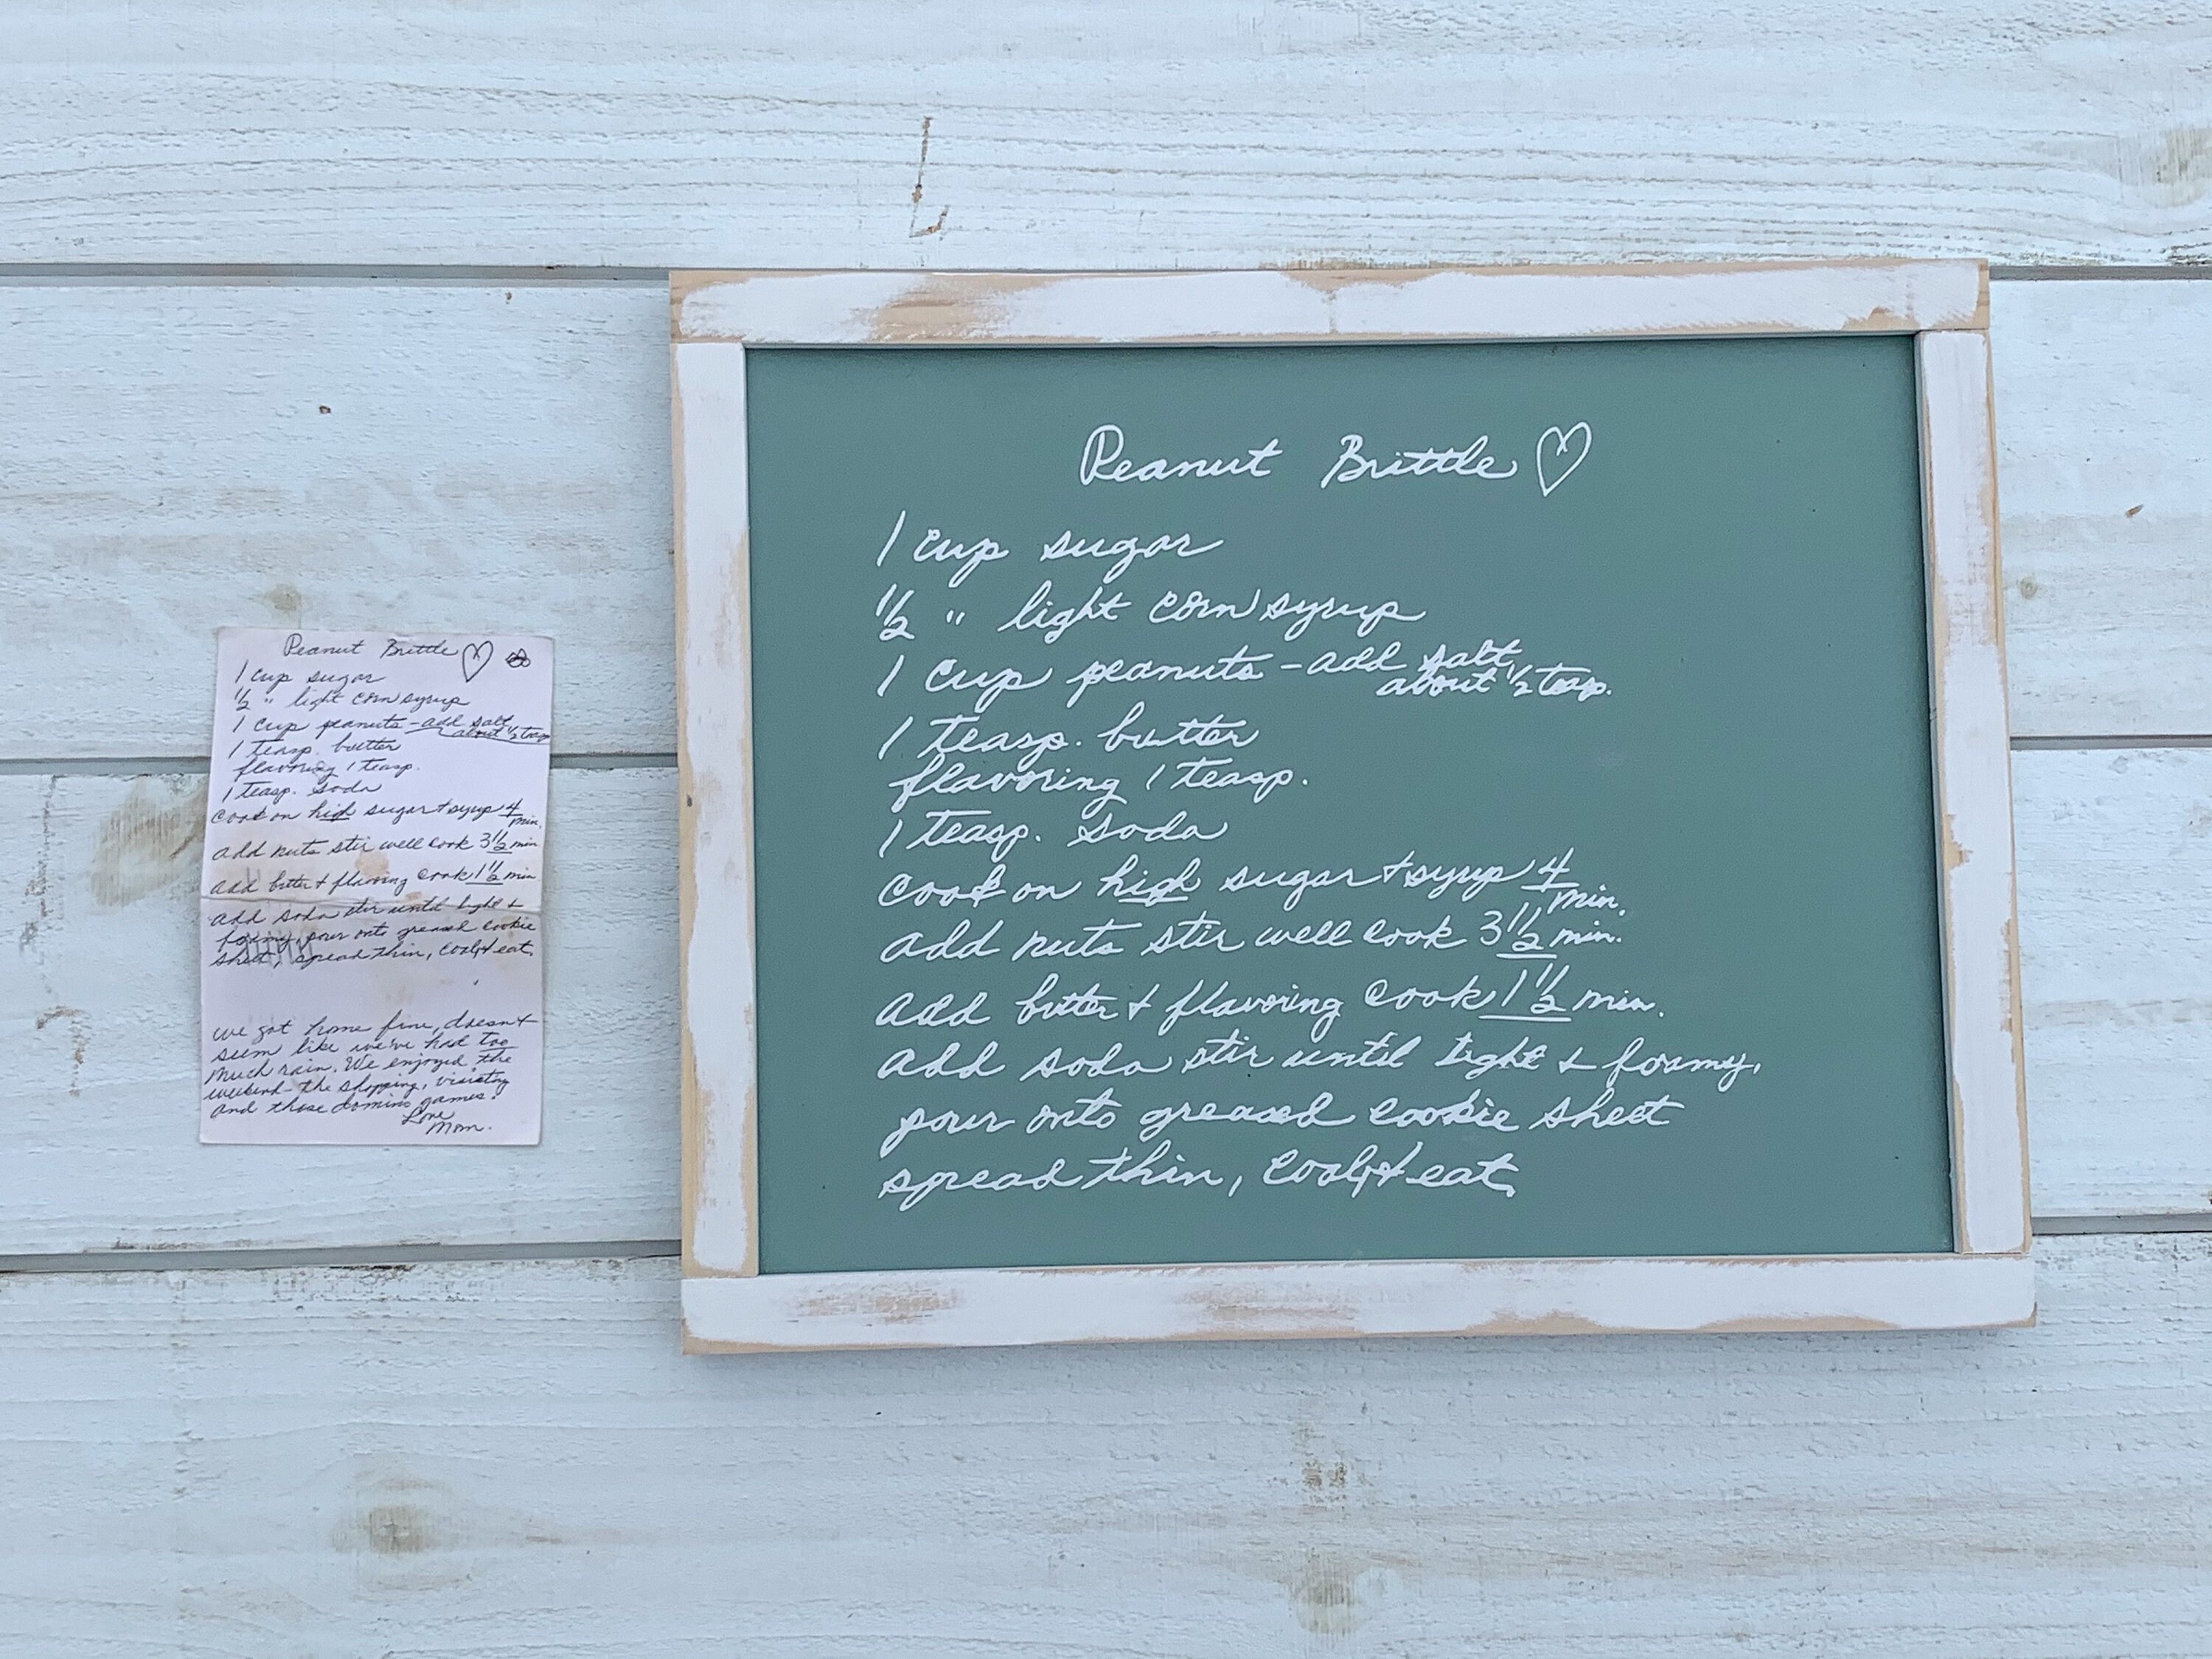 Peanut Brittle
1 cup sugar
½ " light corn syrup
1 cup peanuts - add salt
about ½ teasp.
1 teasp. butter
flavoring 1 teasp.
1 teasp. soda
cook on high sugar + syrup 4
min.
add nuts stir well cook 3½ min
add butter + flavoring cook 1½ min
add soda stir until light +
foamy, pour onto greased cookie
sheet, spread thin, cool + eat.
we got home fine, doesn't
seem like we've had too
much rain. We enjoyed the
weekend - the shopping, visiting
and those domino games.
Love
Mom.
Peanut Brittle
1 cup sugar
½ " light corn syrup
1 cup peanuts - add salt
about ½ teasp.
1 teasp. butter
flavoring 1 teasp.
1 teasp. soda
cook on high sugar + syrup 4
min.
add nuts stir well cook 3½ min.
add butter + flavoring cook 1½ min.
add soda stir until light + foamy,
pour onto greased cookie sheet
spread thin, cool + eat.